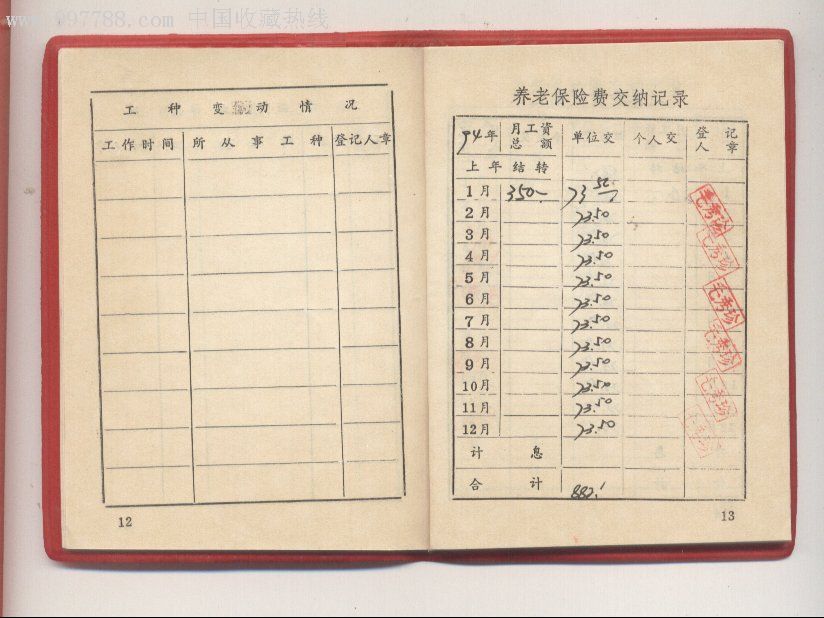 www.997788.com 中国收藏热线
工种变动情况
工作时间 所从事工种 登记人章
12
养老保险费交纳记录
94年 月工资总额 单位交 个人交 登记人章
上年结转
1月 350- 73.50
2月 73.50
3月 73.50
4月 73.50
5月 73.50
6月 73.50
7月 73.50
8月 73.50
9月 73.50
10月 73.50
11月 73.50
12月 73.50
毛秀珍
毛秀珍
毛秀珍
毛秀珍
毛秀珍
计息
合计 882.-
13